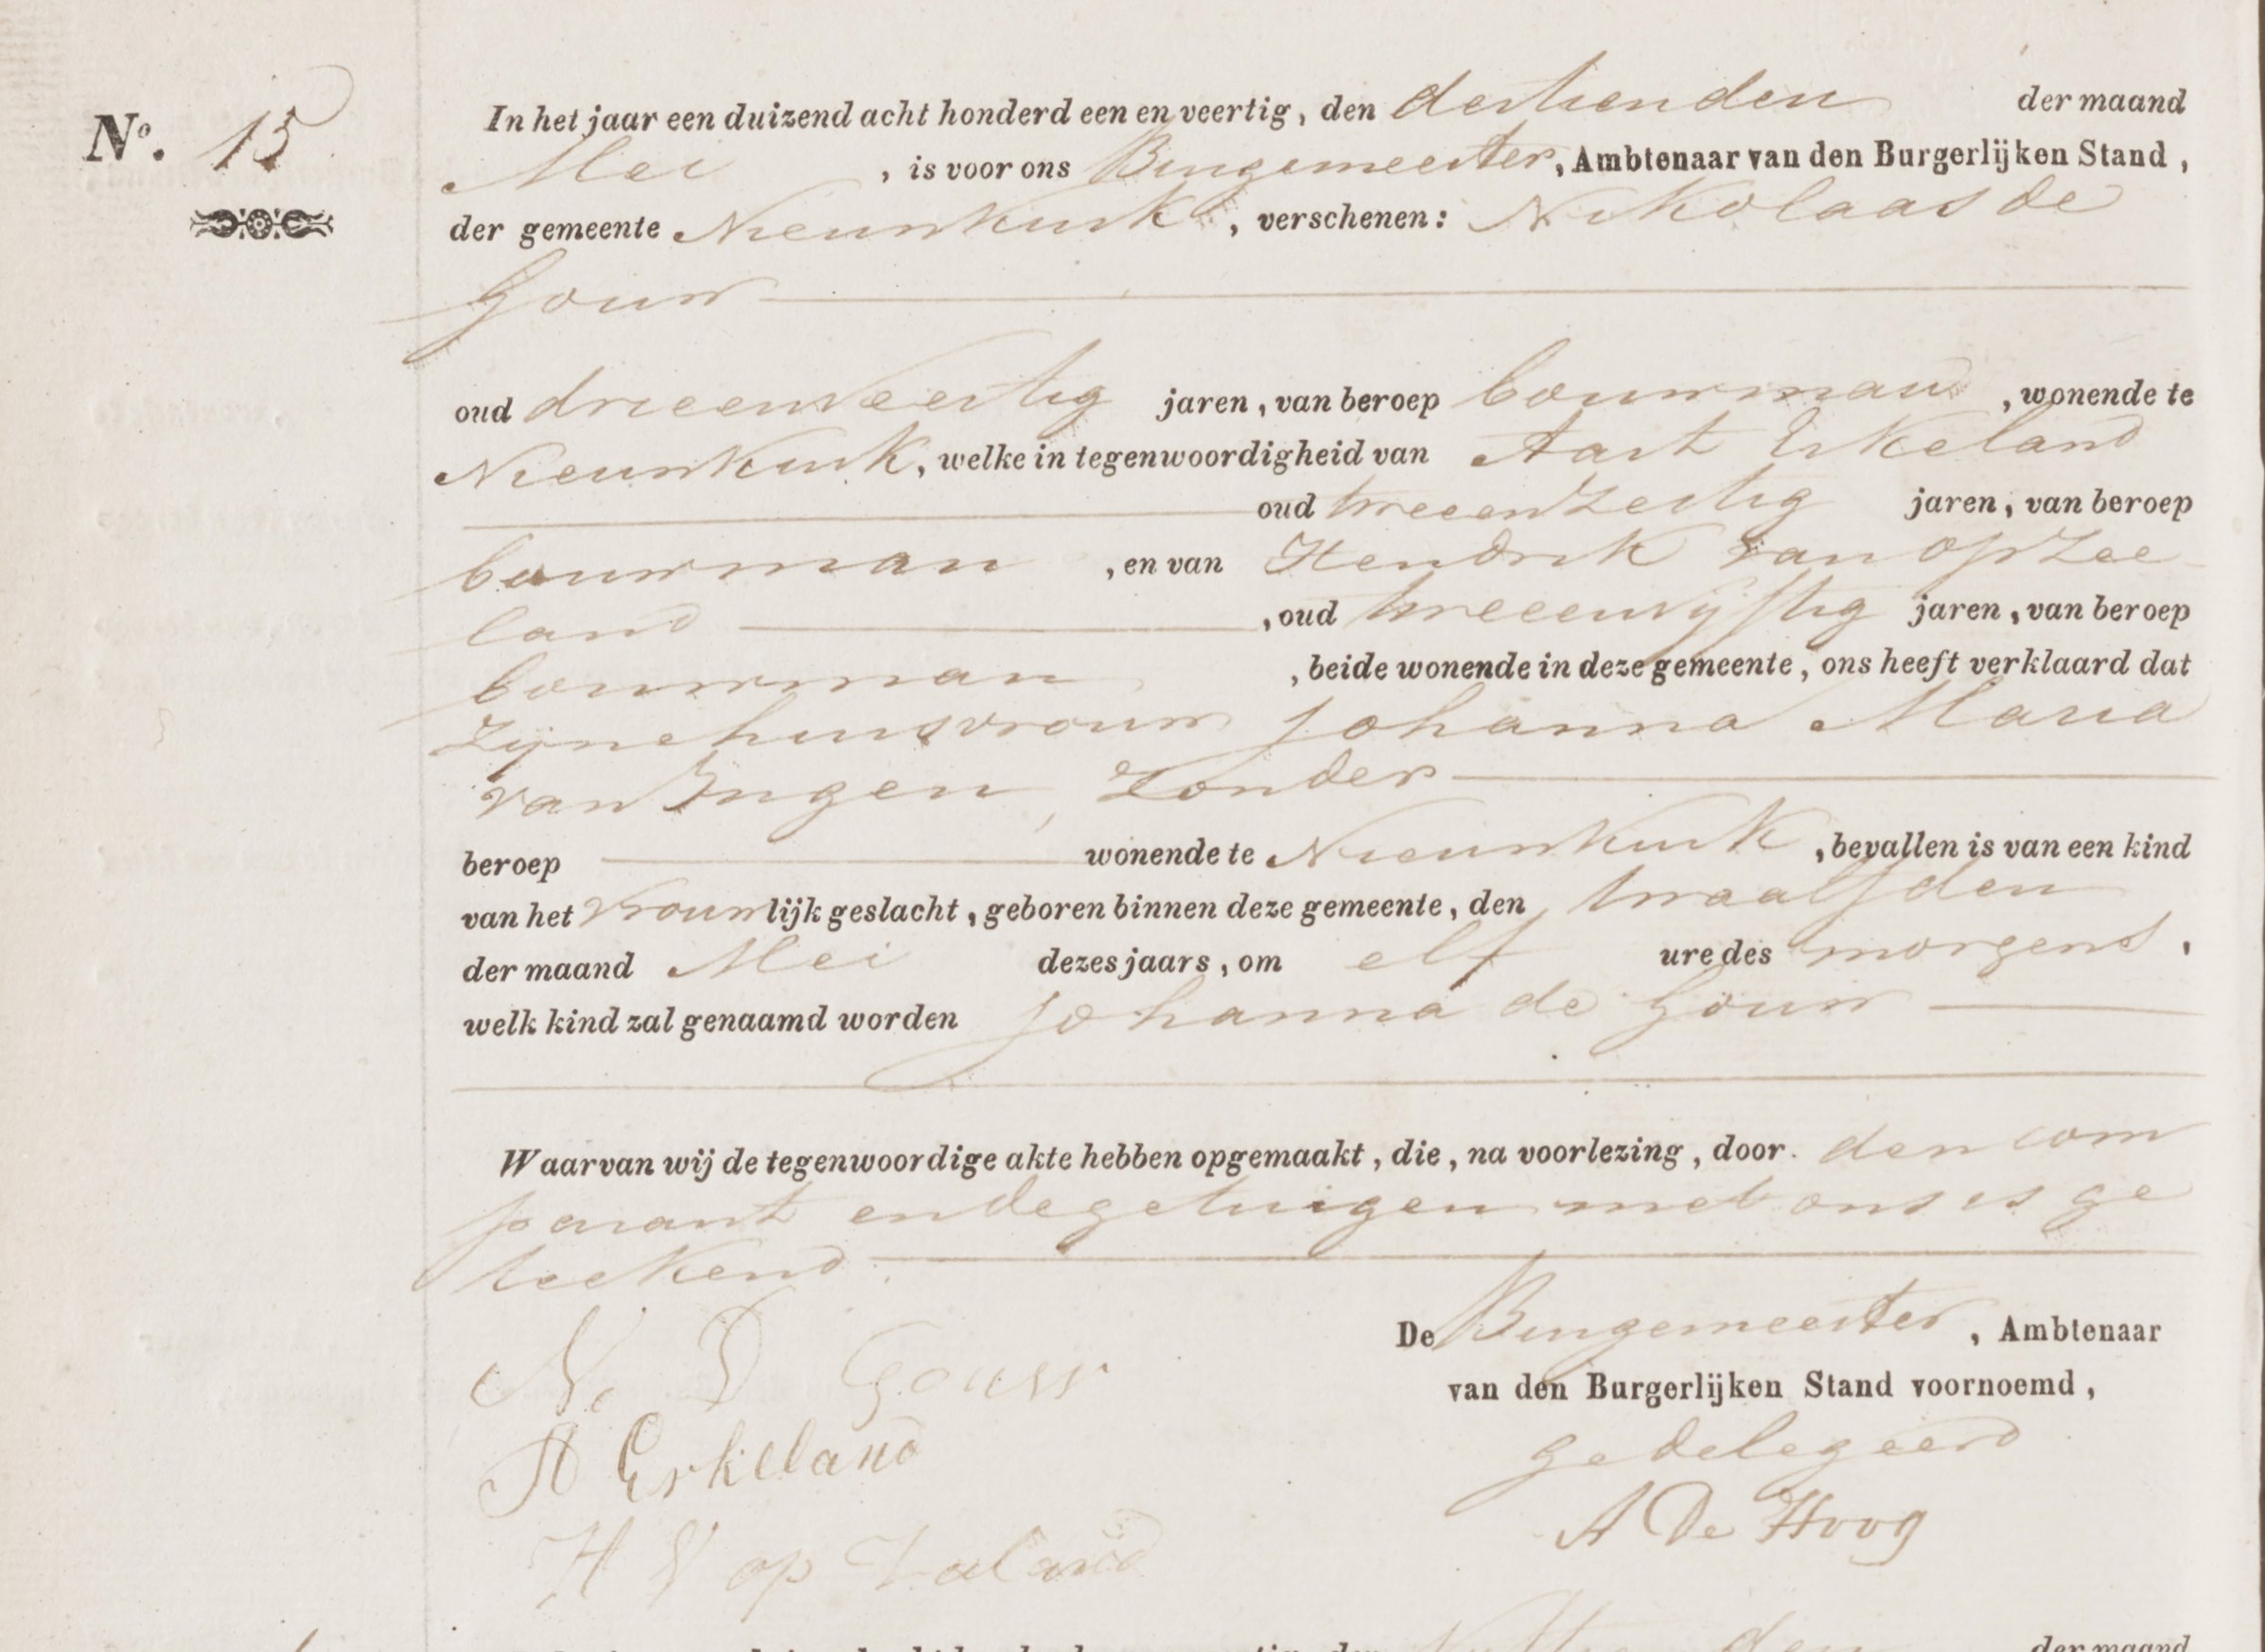 No. 15
In het jaar een duizend acht honderd een en veertig, den dertienden der maand
Mei, is voor ons Burgemeester, Ambtenaar van den Burgerlijken Stand,
der gemeente Nieuwkuik, verschenen: Nikolaas de
Gouw
oud drieenveertig jaren, van beroep bouwman, wonende te
Nieuwkuik, welke in tegenwoordigheid van Aart Erkeland
oud tweeenzestig jaren, van beroep
bouwman, en van Hendrik van opzee
land, oud tweeenvijftig jaren, van beroep
bouwman, beide wonende in deze gemeente, ons heeft verklaard dat
zijne huisvrouw Johanna Maria
van Ingen, zonder
beroep wonende te Nieuwkuik, bevallen is van een kind
van het vrouwlijk geslacht, geboren binnen deze gemeente, den twaalfden
der maand Mei dezes jaars, om elf ure des morgens,
welk kind zal genaamd worden Johanna de Gouw
Waarvan wij de tegenwoordige akte hebben opgemaakt, die, na voorlezing, door den com
parant en de getuigen met ons is ge
teekend.
De Burgemeester, Ambtenaar
van den Burgerlijken Stand voornoemd,
N. D Gouw
A Erkeland
gedelegeerd
A De Hoog
H V op Zaland
der maand